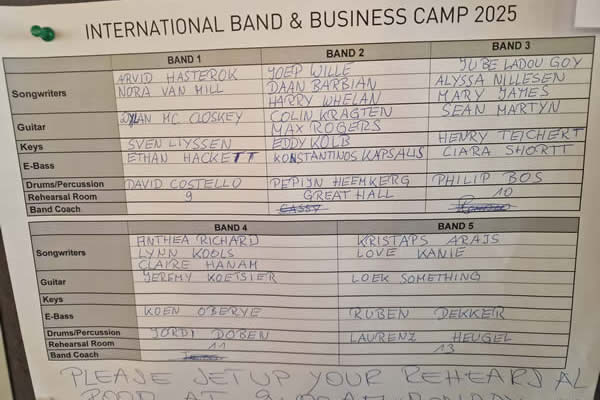 INTERNATIONAL BAND & BUSINESS CAMP 2025
BAND 1 BAND 2 BAND 3
Songwriters ARVID HASTEROK JOEP WILLE JUBE LADOU GOY
NORA VAN MILL DAAN BARBIAN ALYSSA NILLESEN
HARRY WHELAN MARY JAMES
Guitar DYLAN MC CLOSKEY COLIN KRAGTEN SEAN MARTYN
MAX ROGERS
Keys SVEN LIYSSEN EDDY KOLB HENRY TEICHERT
E-Bass ETHAN HACKETT KONSTANTINOS KAPSALIS CIARA SHORTT
Drums/Percussion DAVID COSTELLO PEPIJN HEEMKERG PHILIP BOS
Rehearsal Room 9 GREAT HALL 10
Band Coach CASSY
BAND 4 BAND 5
Songwriters ANTHEA RICHARD KRISTAPS ARAJS
LYNN KOOLS LOVE KANIE
CLAIRE HANAM
Guitar JEREMY KOETSIER LOEK SOMETHING
Keys
E-Bass KOEN OBERYE RUBEN DEKKER
Drums/Percussion JORDI DOBEN LAURENZ HEUGEL
Rehearsal Room 11 13
Band Coach
PLEASE SETUP YOUR REHEARSAL
ROOM AT